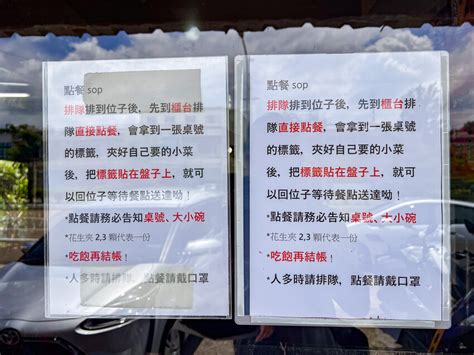 點餐 sop
排隊排到位子後，先到櫃台排
隊直接點餐，會拿到一張桌號
的標籤，夾好自己要的小菜
後，把標籤貼在盤子上，就可
以回位子等待餐點送達呦！
*點餐請務必告知桌號、大小碗
*花生夾 2,3 顆代表一份
*吃飽再結帳！
*人多時請排隊，點餐請戴口罩
點餐 sop
排隊排到位子後，先到櫃台排
隊直接點餐，會拿到一張桌號
的標籤，夾好自己要的小菜
後，把標籤貼在盤子上，就可
以回位子等待餐點送達呦！
*點餐請務必告知桌號、大小碗
*花生夾 2,3 顆代表一份
*吃飽再結帳！
*人多時請排隊，點餐請戴口罩